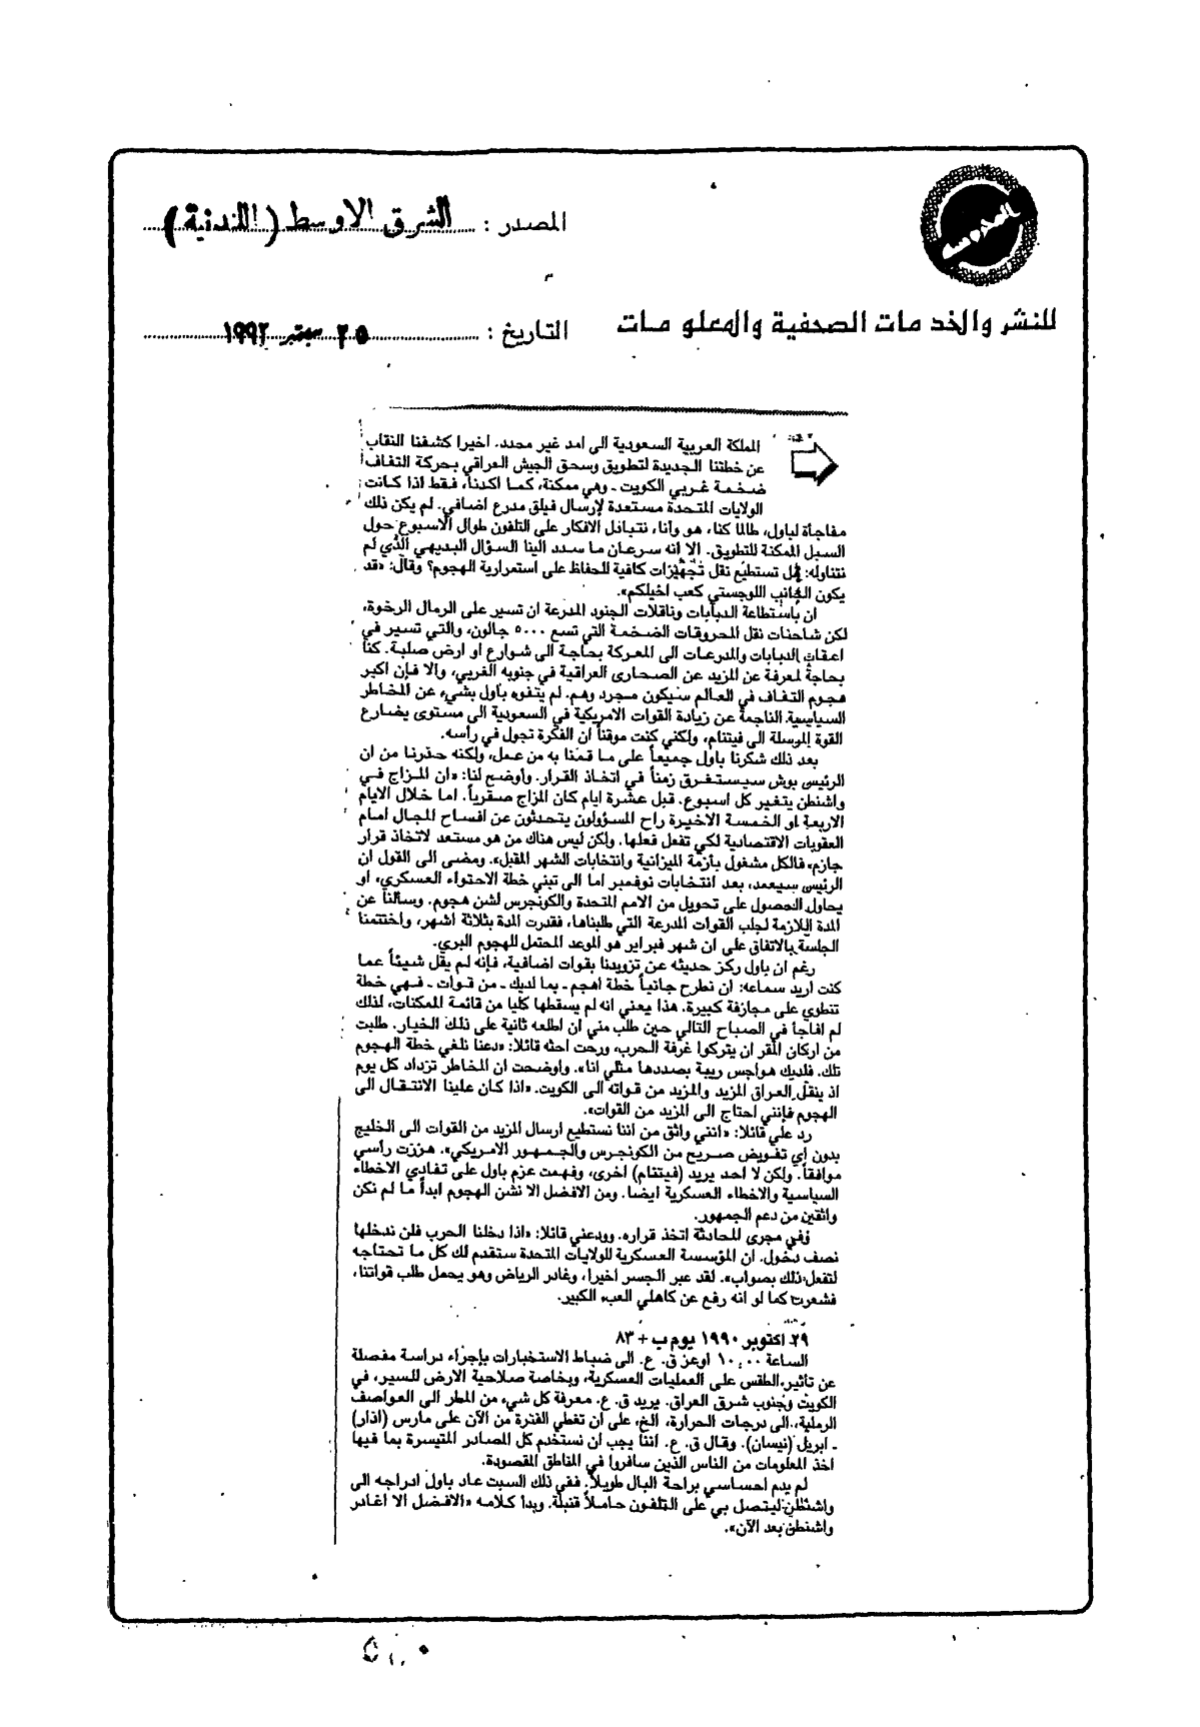 المصدر : الشرق الاوسط (اللندنية)
للنشر والخدمات الصحفية والمعلومات
التاريخ : ٢٥ سبتمبر ١٩٩٢
المملكة العربية السعودية الى امد غير محدد. اخيرا كشفنا النقاب
عن خطتنا الجديدة لتطويق وسحق الجيش العراقي بحركة التفاف
ضخمة غربي الكويت - وهي ممكنة، كما اكدنا، فقط اذا كانت
الولايات المتحدة مستعدة لإرسال فيلق مدرع اضافي. لم يكن ذلك
مفاجأة لباول، طالما كنا، هو وأنا، نتبادل الافكار على التلفون طوال الاسبوع حول
السبل الممكنة للتطويق. الا انه سرعان ما سدد الينا السؤال البديهي الذي لم
نتناوله: هل تستطيع نقل تجهيزات كافية للحفاظ على استمرارية الهجوم؟ وقال: «قد
يكون الجانب اللوجستي كعب اخيلكم».
ان باستطاعة الدبابات وناقلات الجنود المدرعة ان تسير على الرمال الرخوة،
لكن شاحنات نقل المحروقات الضخمة التي تسع ٥٠٠٠ جالون، والتي تسير في
اعقاب الدبابات والمدرعات الى المعركة بحاجة الى شوارع او ارض صلبة. كنا
بحاجة لمعرفة عن المزيد عن الصحارى العراقية في جنوبه الغربي، والا فإن اكبر
هجوم التفاف في العالم سيكون مجرد وهم. لم يتفوه باول بشيء عن المخاطر
السياسية الناجمة عن زيادة القوات الامريكية في السعودية الى مستوى يضارع
القوة المرسلة الى فيتنام، ولكني كنت موقناً ان الفكرة تجول في رأسه.
بعد ذلك شكرنا باول جميعاً على ما قمنا به من عمل، ولكنه حذرنا من ان
الرئيس بوش سيستغرق زمناً في اتخاذ القرار. وأوضح لنا: «ان المزاج في
واشنطن يتغير كل اسبوع. قبل عشرة ايام كان المزاج صقرياً. اما خلال الايام
الاربعة او الخمسة الاخيرة راح المسؤولون يتحدثون عن افساح المجال امام
العقوبات الاقتصادية لكي تفعل فعلها. ولكن ليس هناك من هو مستعد لاتخاذ قرار
جازم، فالكل مشغول بأزمة الميزانية وانتخابات الشهر المقبل». ومضى الى القول ان
الرئيس سيعمد، بعد انتخابات نوفمبر اما الى تبني خطة الاحتواء العسكري، او
يحاول الحصول على تحويل من الامم المتحدة والكونجرس لشن هجوم. وسألنا عن
المدة اللازمة لجلب القوات المدرعة التي طلبناها، فقدرت المدة بثلاثة اشهر، واختتمنا
الجلسة بالاتفاق على ان شهر فبراير هو الموعد المحتمل للهجوم البري.
رغم ان باول ركز حديثه عن تزويدنا بقوات اضافية، فإنه لم يقل شيئاً عما
كنت اريد سماعه: ان نطرح جانباً خطة اهجم - بما لديك - من قوات - فهي خطة
تنطوي على مجازفة كبيرة. هذا يعني انه لم يسقطها كليا من قائمة الممكنات، لذلك
لم افاجأ في الصباح التالي حين طلب مني ان اطلعه ثانية على ذلك الخيار. طلبت
من اركان المقر ان يتركوا غرفة الحرب، ورحت احثه قائلا: «دعنا نلغي خطة الهجوم
تلك. فلديك هواجس ريبة بصددها مثلي انا». وأوضحت ان المخاطر تزداد كل يوم
اذ ينقل العراق المزيد والمزيد من قواته الى الكويت. «اذا كان علينا الانتقال الى
الهجوم فإنني احتاج الى المزيد من القوات».
رد علي قائلا: «انني واثق من اننا نستطيع ارسال المزيد من القوات الى الخليج
بدون أي تفويض صريح من الكونجرس والجمهور الامريكي». هززت رأسي
موافقاً. ولكن لا احد يريد (فيتنام) اخرى، وفهمت عزم باول على تفادي الاخطاء
السياسية والاخطاء العسكرية ايضا. ومن الافضل الا نشن الهجوم ابداً ما لم نكن
واثقين من دعم الجمهور.
وفي مجرى المحادثة اتخذ قراره. وودعني قائلا: «اذا دخلنا الحرب فلن ندخلها
نصف دخول. ان المؤسسة العسكرية للولايات المتحدة ستقدم لك كل ما تحتاجه
لتفعل ذلك بصواب». لقد عبر الجسر اخيرا، وغادر الرياض وهو يحمل طلب قواتنا،
فشعرت كما لو انه رفع عن كاهلي العبء الكبير.
٢٩ اكتوبر ١٩٩٠ يوم ب + ٨٣
الساعة ١٠,٠٠ اوعز ق. ع. الى ضباط الاستخبارات بإجراء دراسة مفصلة
عن تأثير الطقس على العمليات العسكرية، وبخاصة صلاحية الارض للسير، في
الكويت وجنوب شرق العراق. يريد ق. ع. معرفة كل شيء من المطر الى العواصف
الرملية، الى درجات الحرارة، الخ، على ان تغطي الفترة من الآن على مارس (آذار)
- ابريل (نيسان). وقال ق. ع. اننا يجب ان نستخدم كل المصادر المتيسرة بما فيها
اخذ المعلومات من الناس الذين سافروا في المناطق المقصودة.
لم يدم احساسي براحة البال طويلاً. ففي ذلك السبت عاد باول ادراجه الى
واشنطن ليتصل بي على التلفون حاملاً قنبلة. وبدأ كلامه «الافضل الا اغادر
واشنطن بعد الآن».